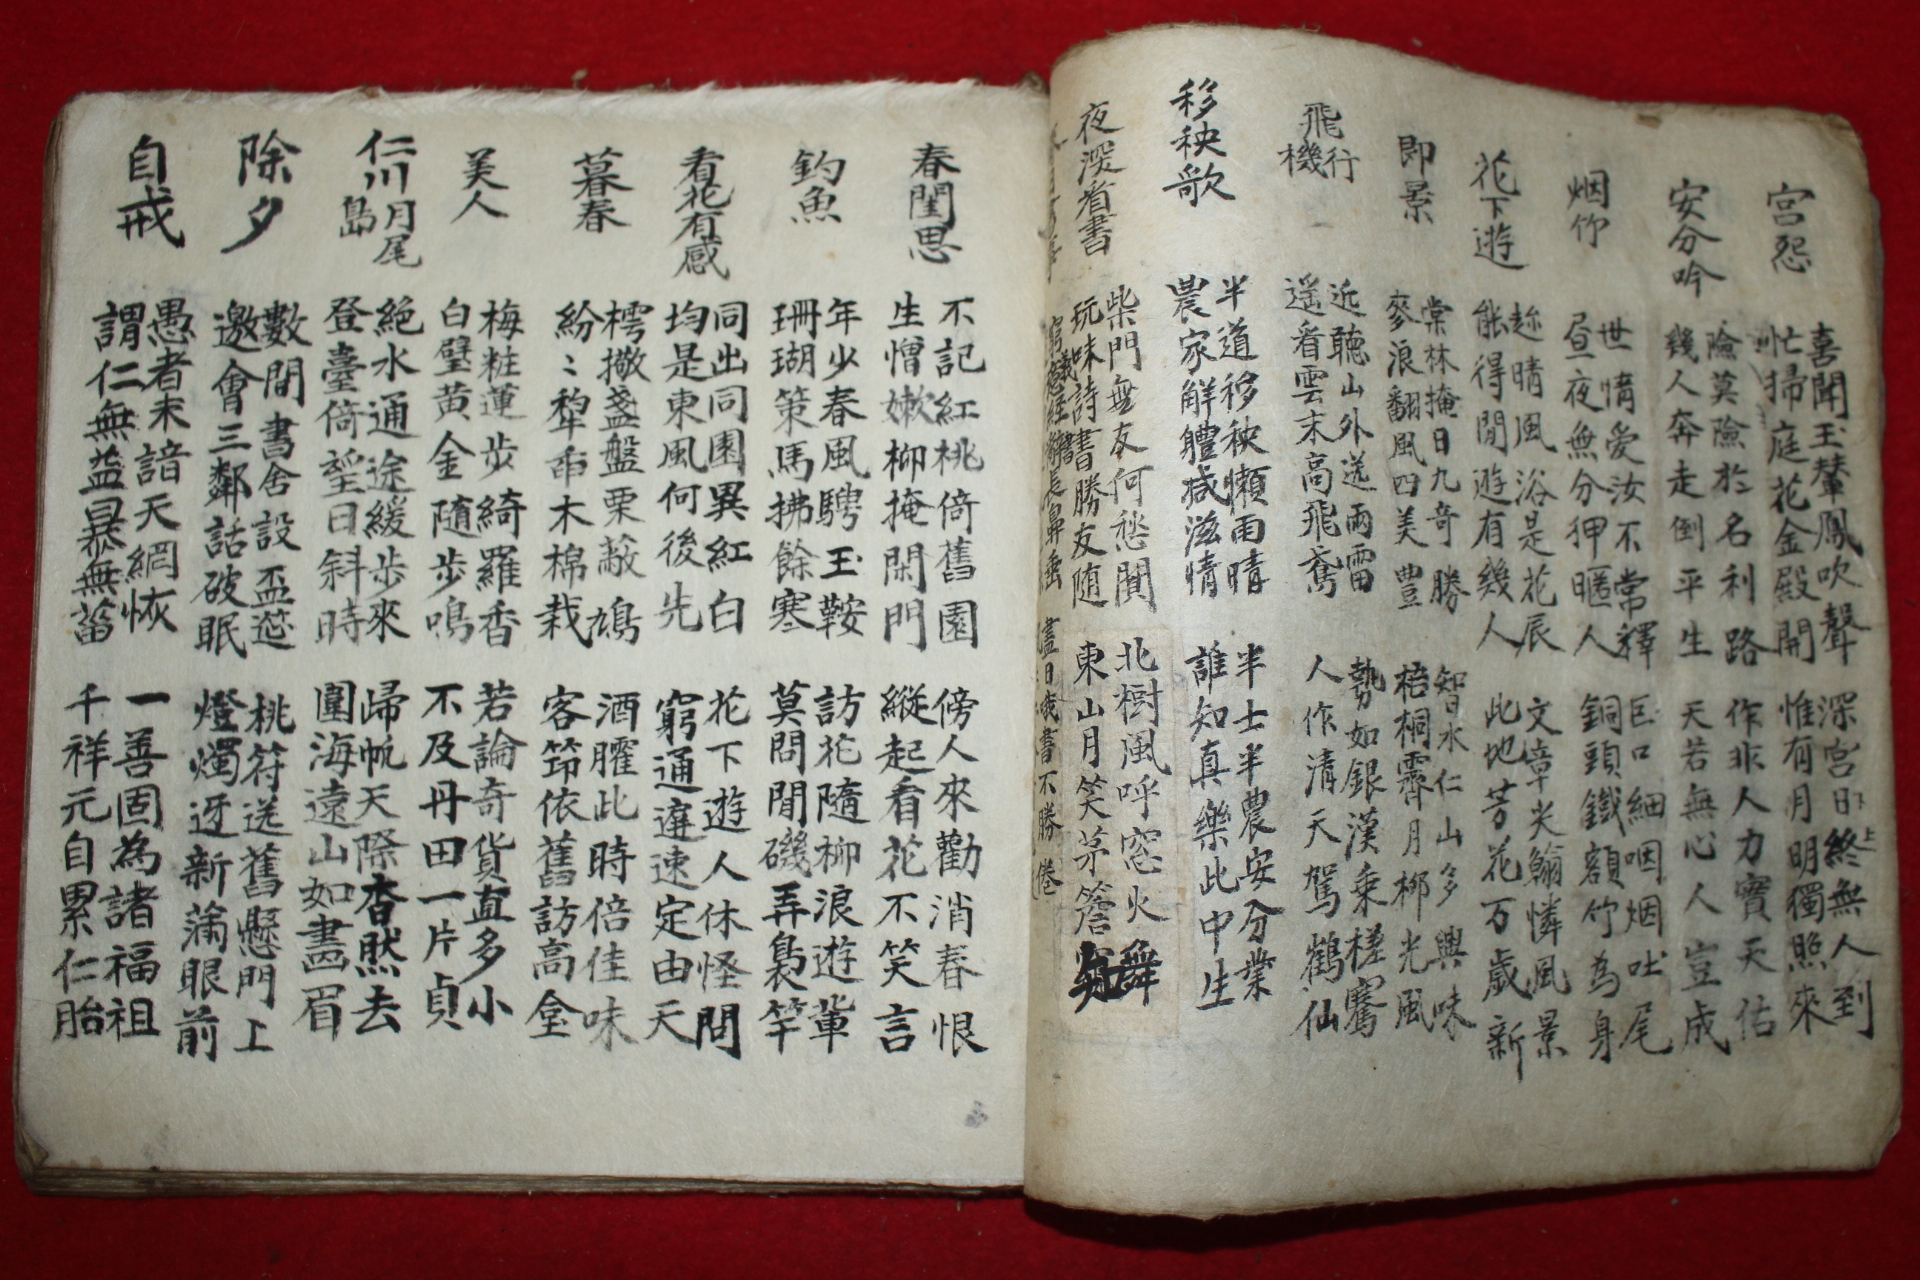 宮怨
喜聞玉輦鳳吹聲 深宮日終無人到
忙掃庭花金殿開 惟有月明獨照來
安分吟
險莫險於名利路 作非人力實天佑
幾人奔走倒平生 天若無心人豈成
烟竹
世情愛汝不常釋 巨口細咽烟吐尾
昼夜無分狎暱人 銅頭鐵額竹為身
花下遊
趂晴風浴是花辰 文章尖翰憐風景
能得閒遊有幾人 此地芳花万歲新
即景
棠林掩日九奇勝 智水仁山多興味
麥浪翻風四美豊 梧桐霽月柳光風
飛行機
近聽山外送雨雷 勢如銀漢乘槎騫
遥看雲末高飛鳶 人作清天駕鶴仙
移秧歌
半道移秧懶雨晴 半士半農安分業
農家解體减滋情 誰知真樂此中生
夜深省書
柴門無友何愁闃 北樹風呼窓火舞
玩味詩書勝友随 東山月笑茅簷窺
盡日 書不勝倦
春閨思
不記紅桃倚舊園 傍人來勸消春恨
生憎嫩柳掩閑門 縱起看花不笑言
釣魚
年少春風騁玉鞍 訪花隨柳浪遊輩
珊瑚策馬拂餘寒 莫問閒磯弄裊竿
看花有感
同出同園異紅白 花下遊人休怪問
均是東風何後先 窮通遲速定由天
暮春
樗撒盏盤栗蔽鳩 酒臛此時倍佳味
紛〻犂雨木棉栽 客笻依舊訪高堂
美人
梅粧蓮步綺羅香 若論奇貨直多小
白璧黄金随步鳴 不及丹田一片貞
仁川月尾島
絶水通途緩步來 歸帆天際杳然去
登臺倚望日斜時 圍海遠山如畵眉
除夕
數間書舍設盃筵 桃符送舊懸門上
邀會三鄰話破眠 燈燭迓新滿眼前
自戒
愚者未諳天網恢 一善固為諸福祖
謂仁無益暴無菑 千祥元自累仁胎